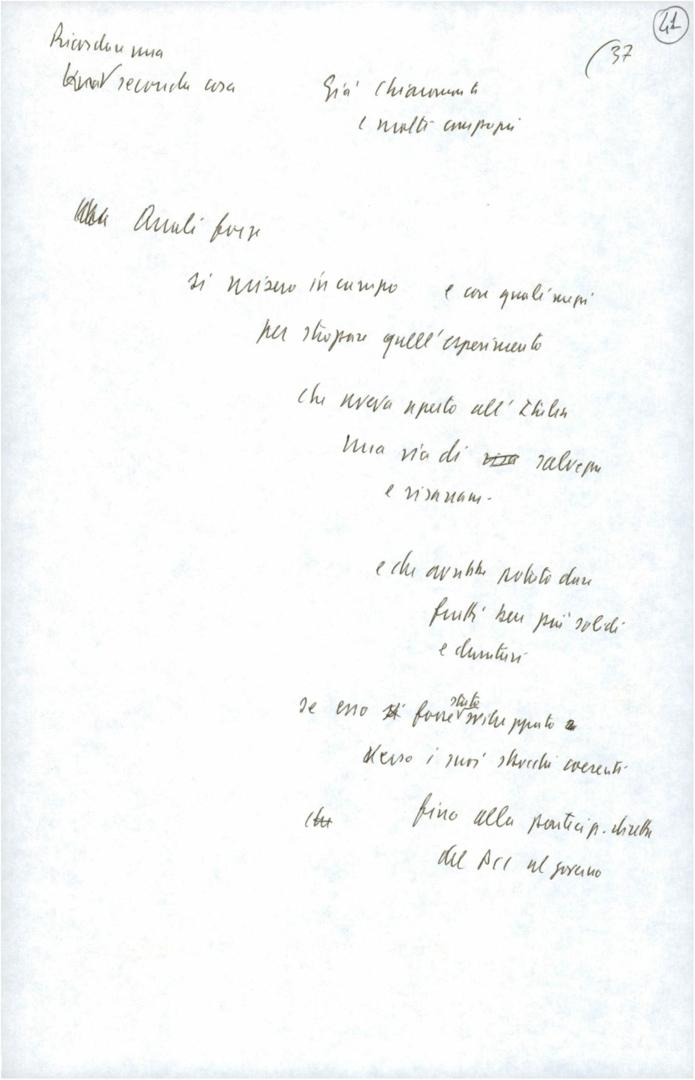 41
(37
Ricordare una
seconda cosa
Già Chiaromonte
e molti compagni
Quali forze
si misero in campo e con quali mezzi
per stroppare quell'esperimento
che aveva aperto all'Italia
una via di salvezza
e risanam.
e che avrebbe potuto dare
frutti ben più solidi
e duraturi
se esso fosse stato sviluppato
verso i suoi sbocchi coerenti
fino alla particip. diretta
del PCI al governo